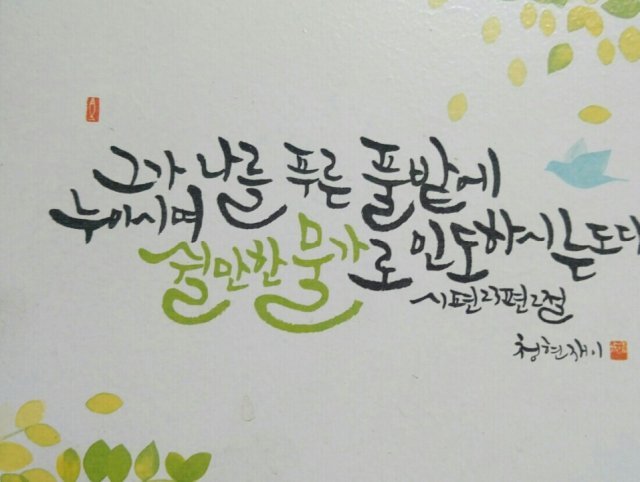 그가 나를 푸른 풀밭에
누이시며
쉴만한 물가로 인도하시는도다
시편23편2절
청현재이